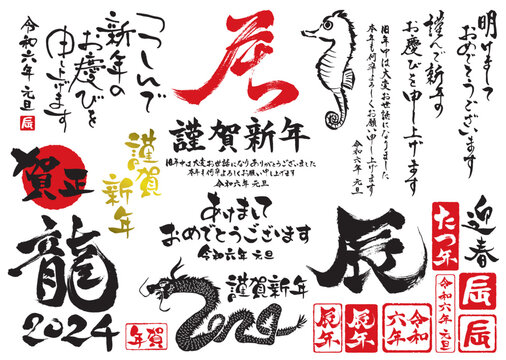 つつしんで
新年の
お慶びを
申し上げます
令和六年 元旦
辰
辰
謹賀新年
旧年中は大変お世話になりありがとうございました
本年も何卒よろしくお願い申し上げます
令和六年 元旦
明けまして
おめでとうございます
謹んで新年の
お慶びを申し上げます
旧年中は大変お世話になりました
本年も何卒よろしくお願い申し上げます
令和六年 元旦
賀正
謹賀
新年
あけまして
おめでとうございます
令和六年 元旦
龍
2024
年賀
謹賀新年
2024
辰
迎春
たつ年
令和六年 元旦
辰
辰
辰年
辰年
令和
六年